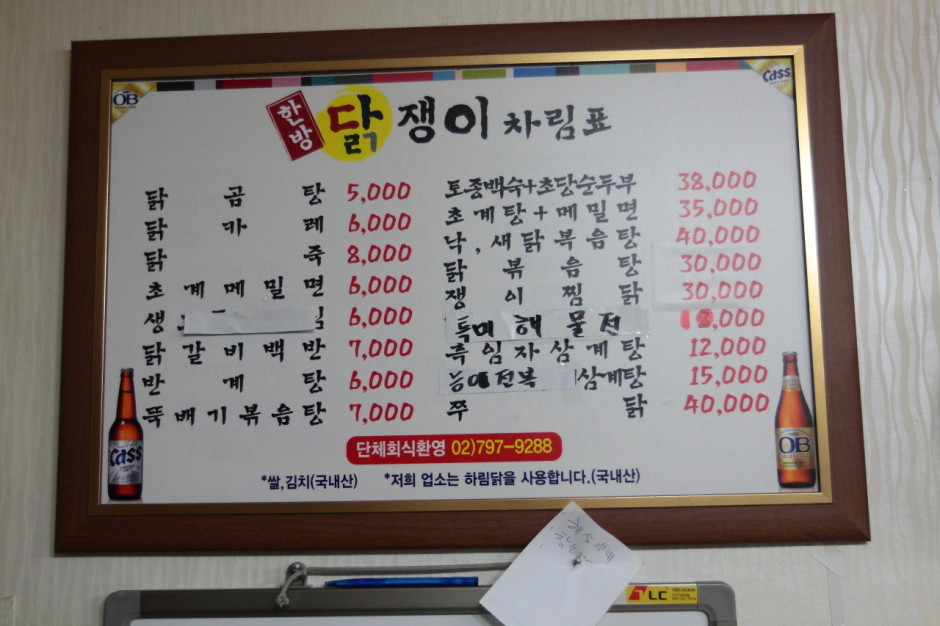 OB
Cass
한방 닭쟁이 차림표
닭곰탕 5,000
닭카레 6,000
닭죽 8,000
초계메밀면 6,000
생 6,000
닭갈비백반 7,000
반계탕 6,000
뚝배기볶음탕 7,000
토종백숙+초당순두부 38,000
초계탕+메밀면 35,000
낙,새닭볶음탕 40,000
닭볶음탕 30,000
쟁이찜닭 30,000
특미해물전 ,000
흑임자삼계탕 12,000
능이전복삼계탕 15,000
쭈닭 40,000
단체회식환영 02)797-9288
*쌀,김치(국내산) *저희 업소는 하림닭을 사용합니다.(국내산)
Cass
OB
LC